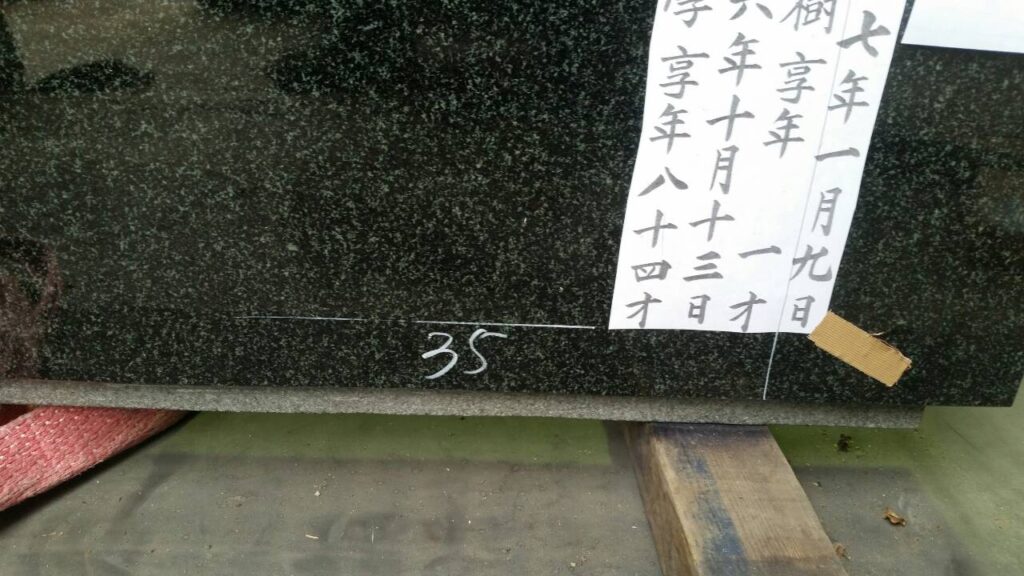 七年一月九日
樹 享年 一才
六年十月十三日
享年八十四才
35